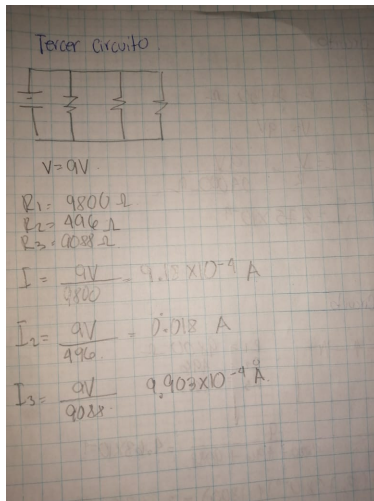 Tercer circuito.
V=9V
R1= 9800 Ω
R2= 496 Ω
R3= 9088 Ω
I = 9V / 9800 = 9.13 x10⁻⁴ A
I2= 9V / 496 = 0.018 A
I3= 9V / 9088. 9.903x10⁻⁴ A.